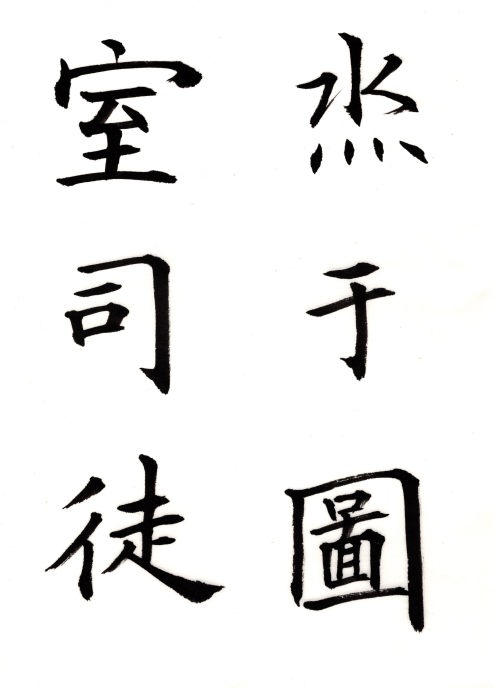 于圖
室司徒